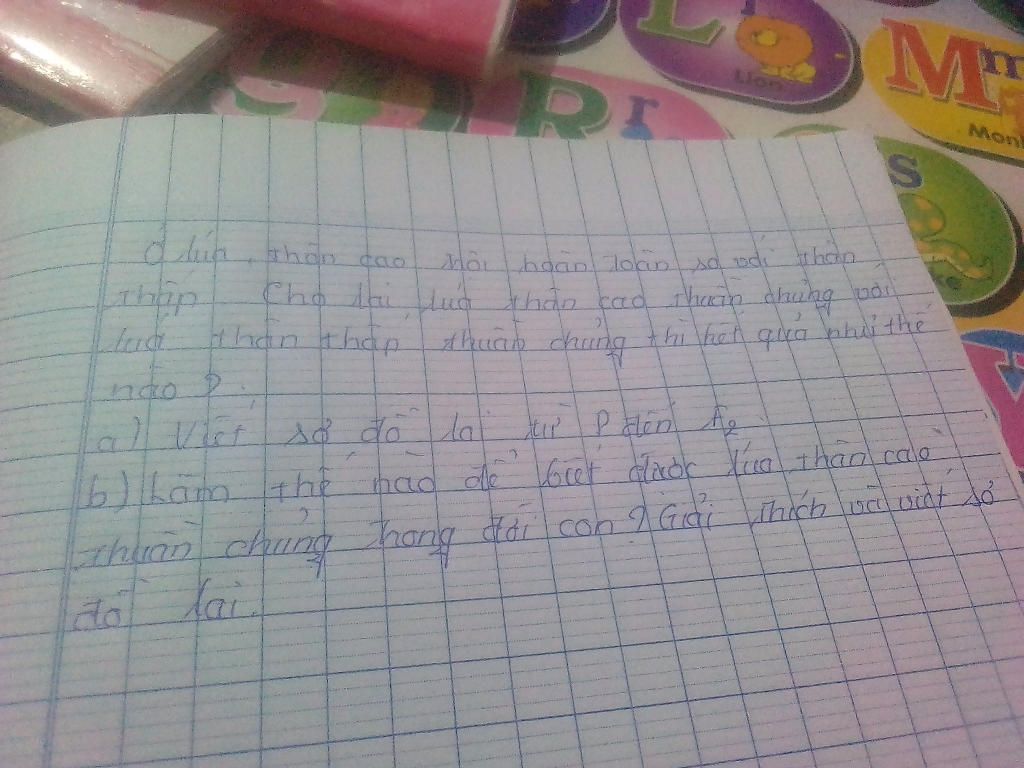 L
Lion
M m
Monk
R r
s
Ở lúa, thân cao trội hoàn toàn so với thân
thấp. Cho lai lúa thân cao thuần chủng với
lúa thân thấp thuần chủng thì kết quả như thế
nào?
a) Viết sơ đồ lai từ P đến F2
b) Làm thế nào để biết được lúa thân cao
thuần chủng trong đời con? Giải thích và viết sơ
đồ lai.